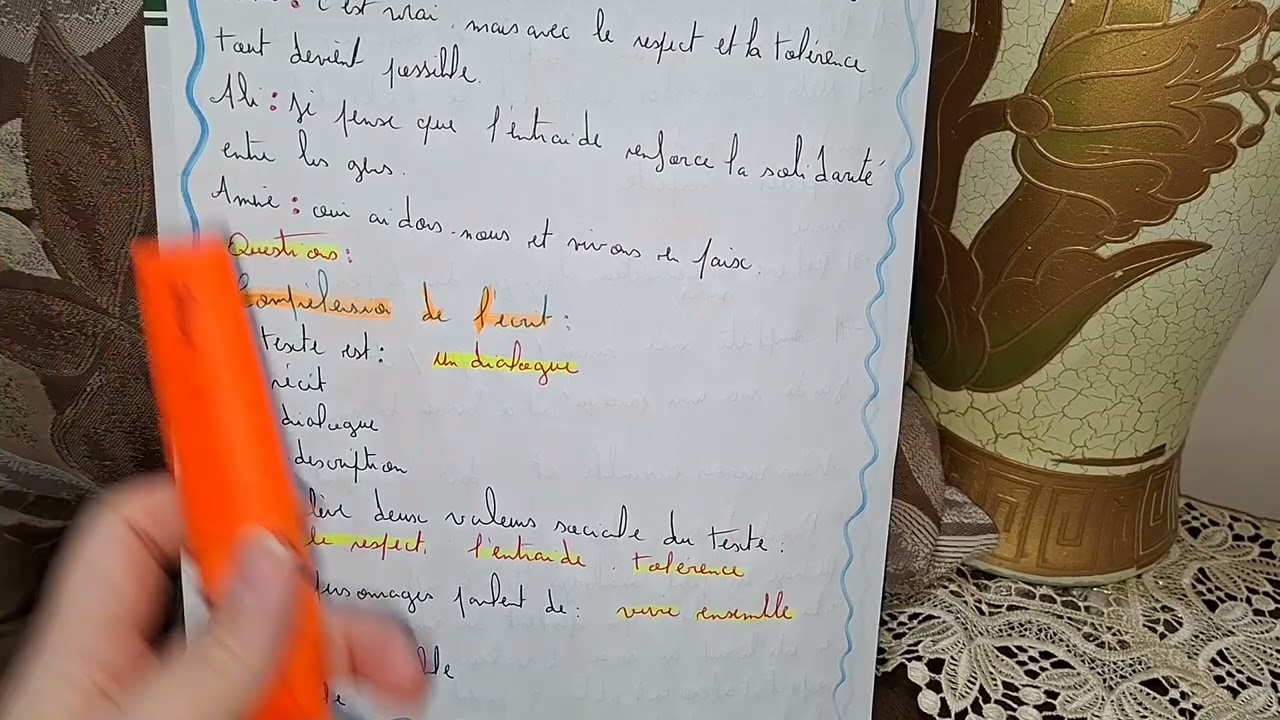 : c'est vrai, mais avec le respect et la tolérence
tout devient possible.
Ali : je pense que l'entraide renforce la solidarité
entre les gens.
Amine : oui aidons-nous et vivons en paix.
Questions :
Compréhension de l'écrit :
texte est : un dialogue
récit
dialogue
description
lève deux valeurs sociale du texte :
le respect, l'entraide, tolérence
personnages parlent de : vivre ensemble